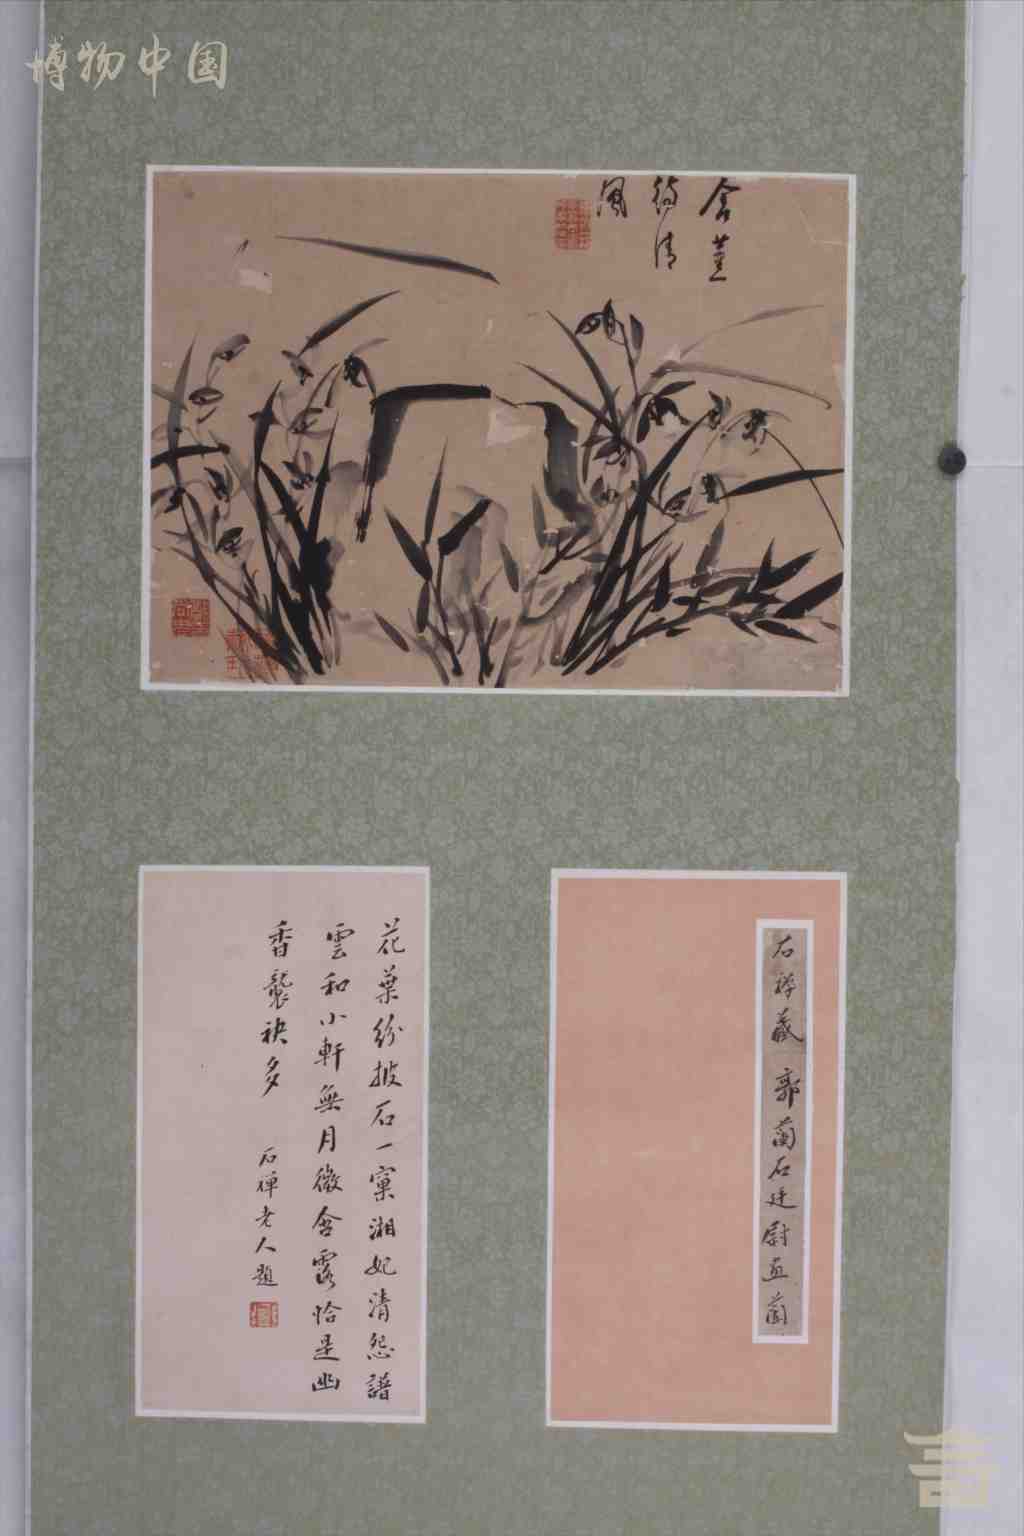 博物中国
含薰
待清
風
花葉紛披石一窠湘妃清怨譜
雲和小軒無月微含露恰是幽
香襲袂多
石禪老人題
石禪藏 郭蘭石廷尉畫蘭